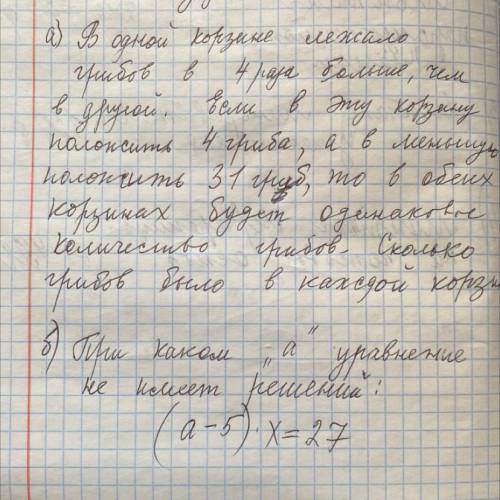 а) В одной корзине лежало
грибов в 4 раза больше, чем
в другой. Если в эту корзину
положить 4 гриба, а в меньшую
положить 31 гриб, то в обеих
корзинах будет одинаковое
количество грибов. Сколько
грибов было в каждой корзи
б) При каком „а" уравнение
не имеет решений:
(а-5)·х=27